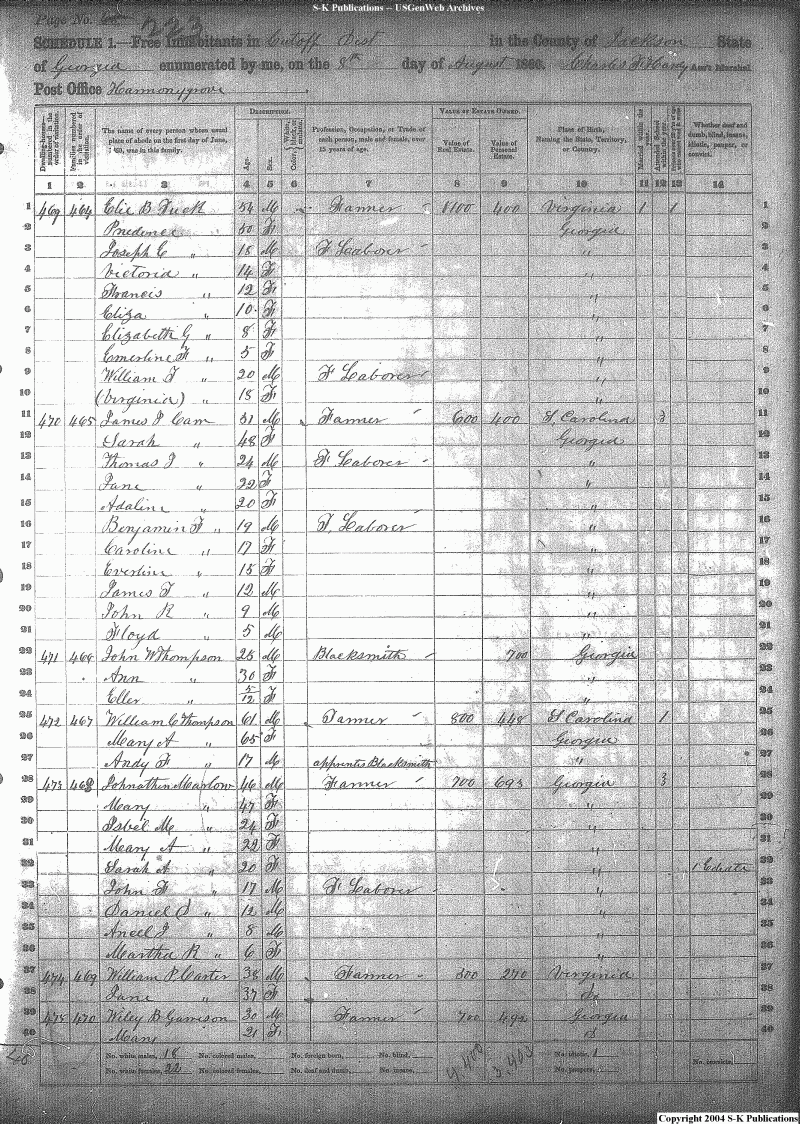 S-K Publications -- USGenWeb Archives
Page No.
223
SCHEDULE 1.—Free Inhabitants in Cutoff Dist in the County of Jackson State
of Georgia enumerated by me, on the 8th day of August 1860. Charles Ass't Marshal
Post Office Harmonygrove
DESCRIPTION. VALUE OF ESTATE OWNED.
Dwelling-houses— numbered in the order of visitation.
Families numbered in the order of visitation.
The name of every person whose usual place of abode on the first day of June, 1860, was in this family.
Age.
Sex.
Color, White, black, or mulatto.
Profession, Occupation, or Trade of each person, male and female, over 15 years of age.
Value of Real Estate.
Value of Personal Estate.
Place of Birth, Naming the State, Territory, or Country.
Married within the year.
Attended School within the year.
Whether deaf and dumb, blind, insane, idiotic, pauper, or convict.
1 2 3 4 5 6 7 8 9 10 11 12 13 14
1 469 464 Elie B 54 M Farmer 1100 400 Virginia 1 1 1
2 Prudence 50 F Georgia 2
3 Joseph C " 18 M F Laborer " 3
4 Victoria " 14 F " 4
5 Francis " 12 F " 5
6 Eliza " 10 F " 6
7 Elizabeth G " 8 F " 7
8 Emerline F " 5 F " 8
9 William F " 20 M F Laborer " 9
10 (Virginia) " 18 F " 10
11 470 465 James P Cam 51 M Farmer 600 400 S. Carolina 3 11
12 Sarah " 48 F Georgia 12
13 Thomas J " 24 M F Laborer " 13
14 Jane " 22 F " 14
15 Adaline " 20 F " 15
16 Benjamin F " 19 M F. Laborer " 16
17 Caroline " 17 F " 17
18 Everline " 15 F " 18
19 James F " 12 M " 19
20 John R " 9 M " 20
21 Floyd " 5 M " 21
22 471 466 John W Thompson 25 M Blacksmith 700 Georgia 22
23 Ann " 30 F " 23
24 Eller " 5/12 F " 24
25 472 467 William C Thompson 61 M Farmer 800 448 S Carolina 1 25
26 Mary A " 65 F Georgia 26
27 Andy F " 17 M apprentis Blacksmith " 27
28 473 468 Johnathin Marlow 46 M Farmer 700 693 Georgia 3 28
29 Mary " 47 F " 29
30 Isbel M " 24 F " 30
31 Mary A " 22 F " 31
32 Sarah A " 20 F " 32
33 John F " 17 M F Laborer " 33
34 Daniel S " 12 M " 34
35 Ancel J " 8 M " 35
36 Martha R " 6 F " 36
37 474 469 William P. Carter 38 M Farmer 300 270 Virginia 37
38 Jane " 37 F Do 38
39 475 470 Wiley B Garrison 30 M Farmer 700 492 Georgia 39
40 Mary 21 F 40
No. white males, 18 No. colored males, No. foreign born, No. blind, 4,400 3,403 No. idiotic, 1 No. convicts,
No. white females, 22 No. colored females, No. deaf and dumb, No. insane, No. paupers,
Copyright 2004 S-K Publications